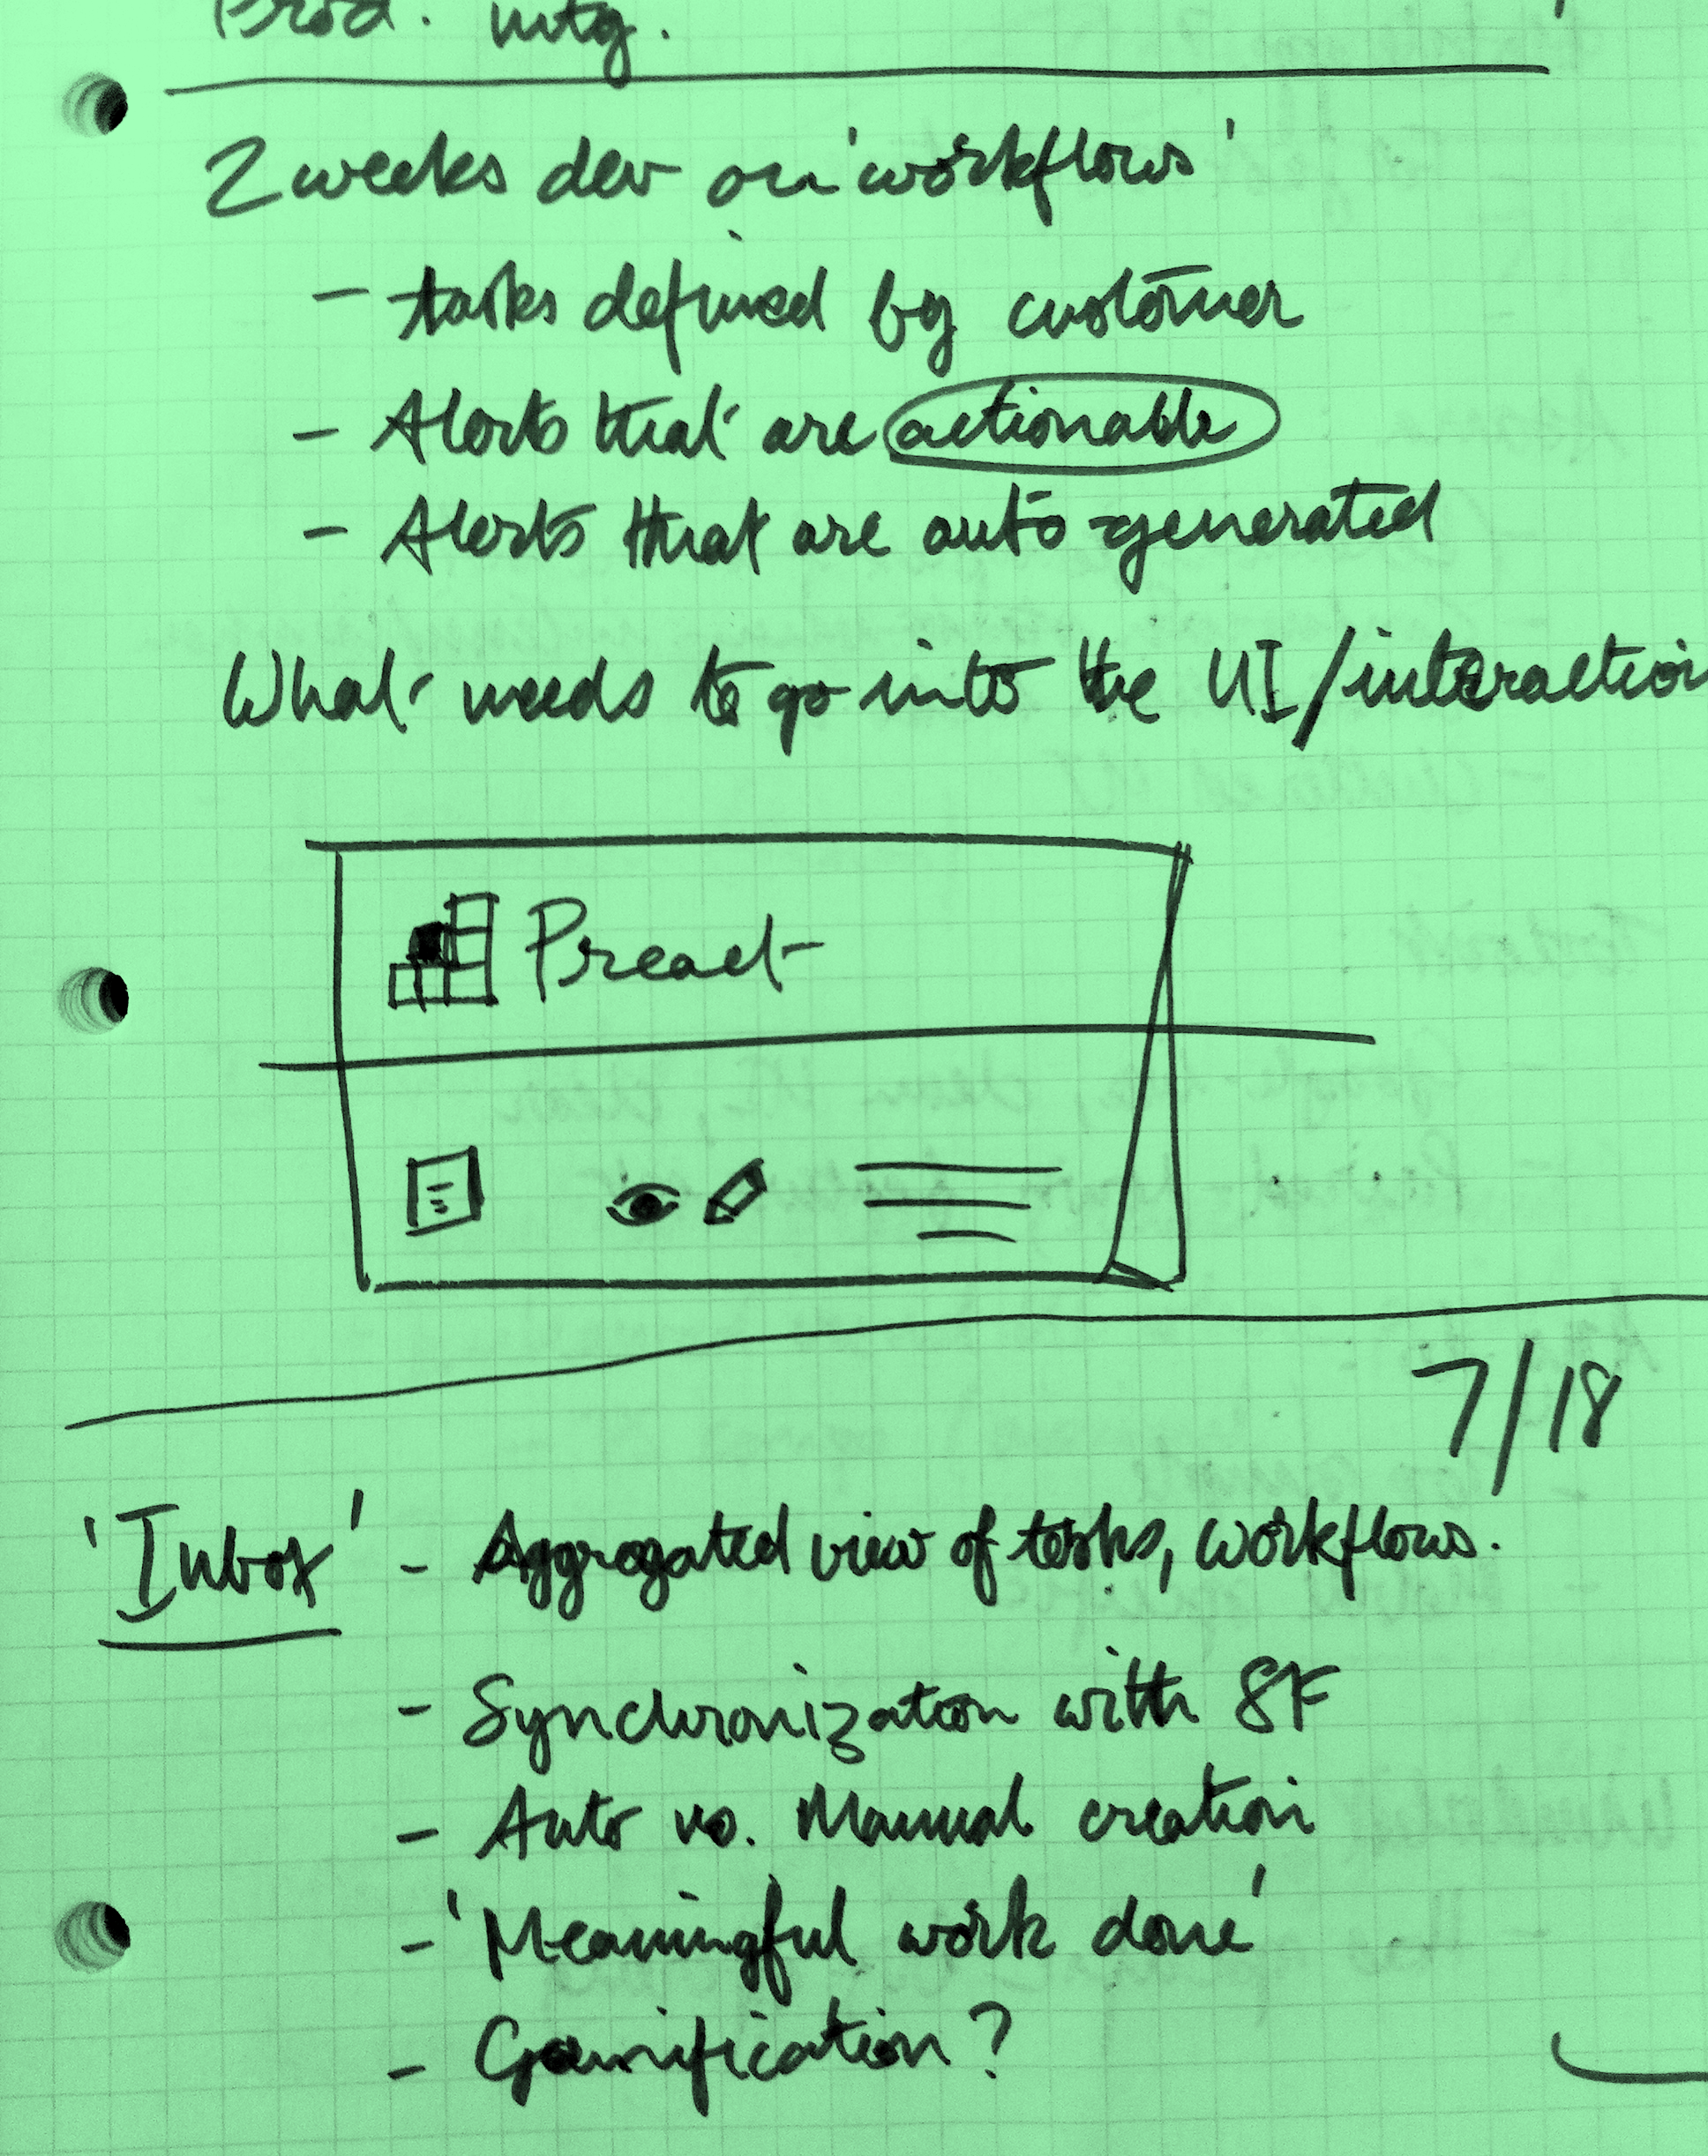 Prod. mtg.
2 weeks dev on 'workflows'
- tasks defined by customer
- Alerts that are actionable
- Alerts that are auto-generated
What needs to go into the UI/interaction
Preact
7/18
'Inbox' - Aggregated view of tasks, workflows.
- Synchronization with SF
- Auto vs. Manual creation
- 'Meaningful work done'
- Gamification?